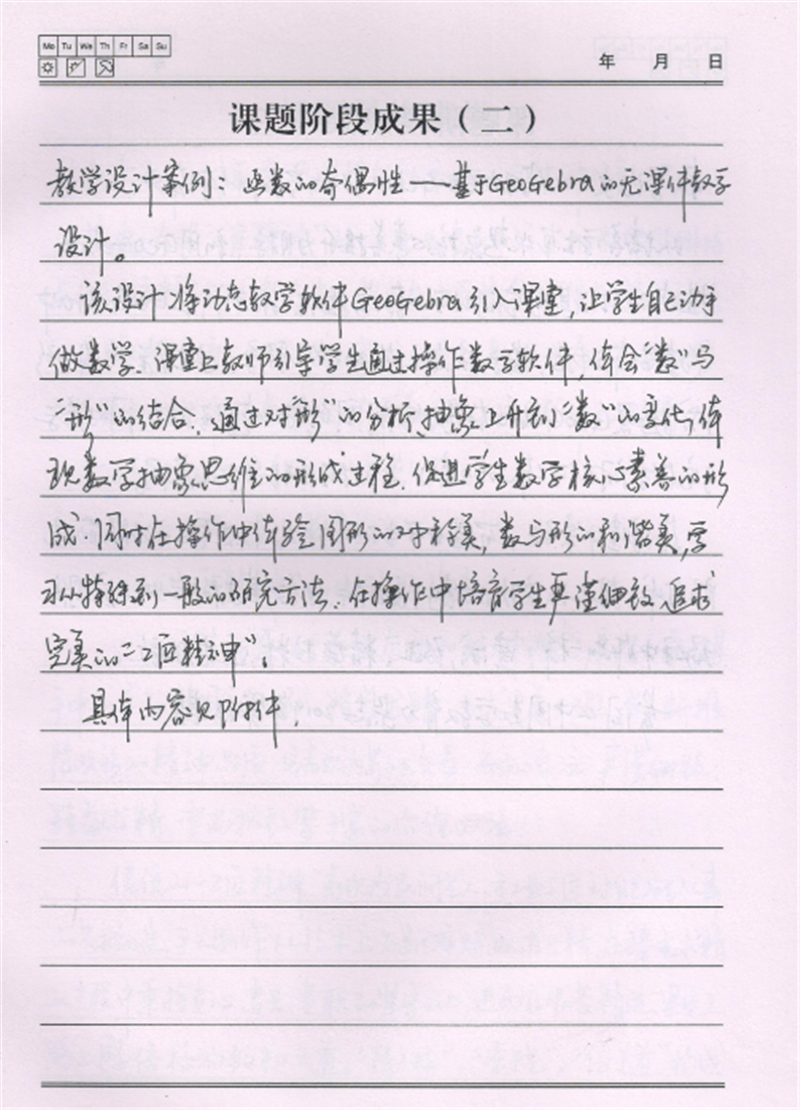 Mo Tu We Th Fr Sa Su
年 月 日
课题阶段成果（二）
教学设计案例：函数的奇偶性——基于GeoGebra的无课件教学
设计。
该设计将动态教学软件GeoGebra引入课堂，让学生自己动手
做数学。课堂上教师引导学生通过操作数学软件，体会“数”与
“形”的结合。通过对“形”的分析、抽象上升到“数”的变化，体
现数学抽象思维的形成过程。促进学生数学核心素养的形
成。同时在操作中体验图形的对称美，数与形的和谐美，学
习从特殊到一般的研究方法。在操作中培育学生严谨细致、追求
完美的“工匠精神”。
具体内容见附件。